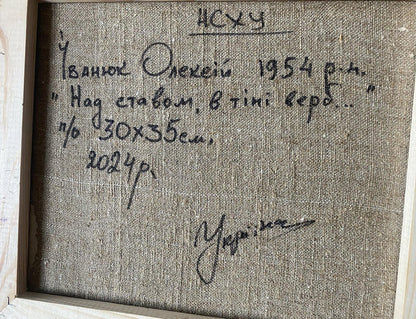 НСХУ
Іванюк Олексій 1954 р.н.
"Над ставом, в тіні верб..."
п/о 30x35см.
2024р.
Україна